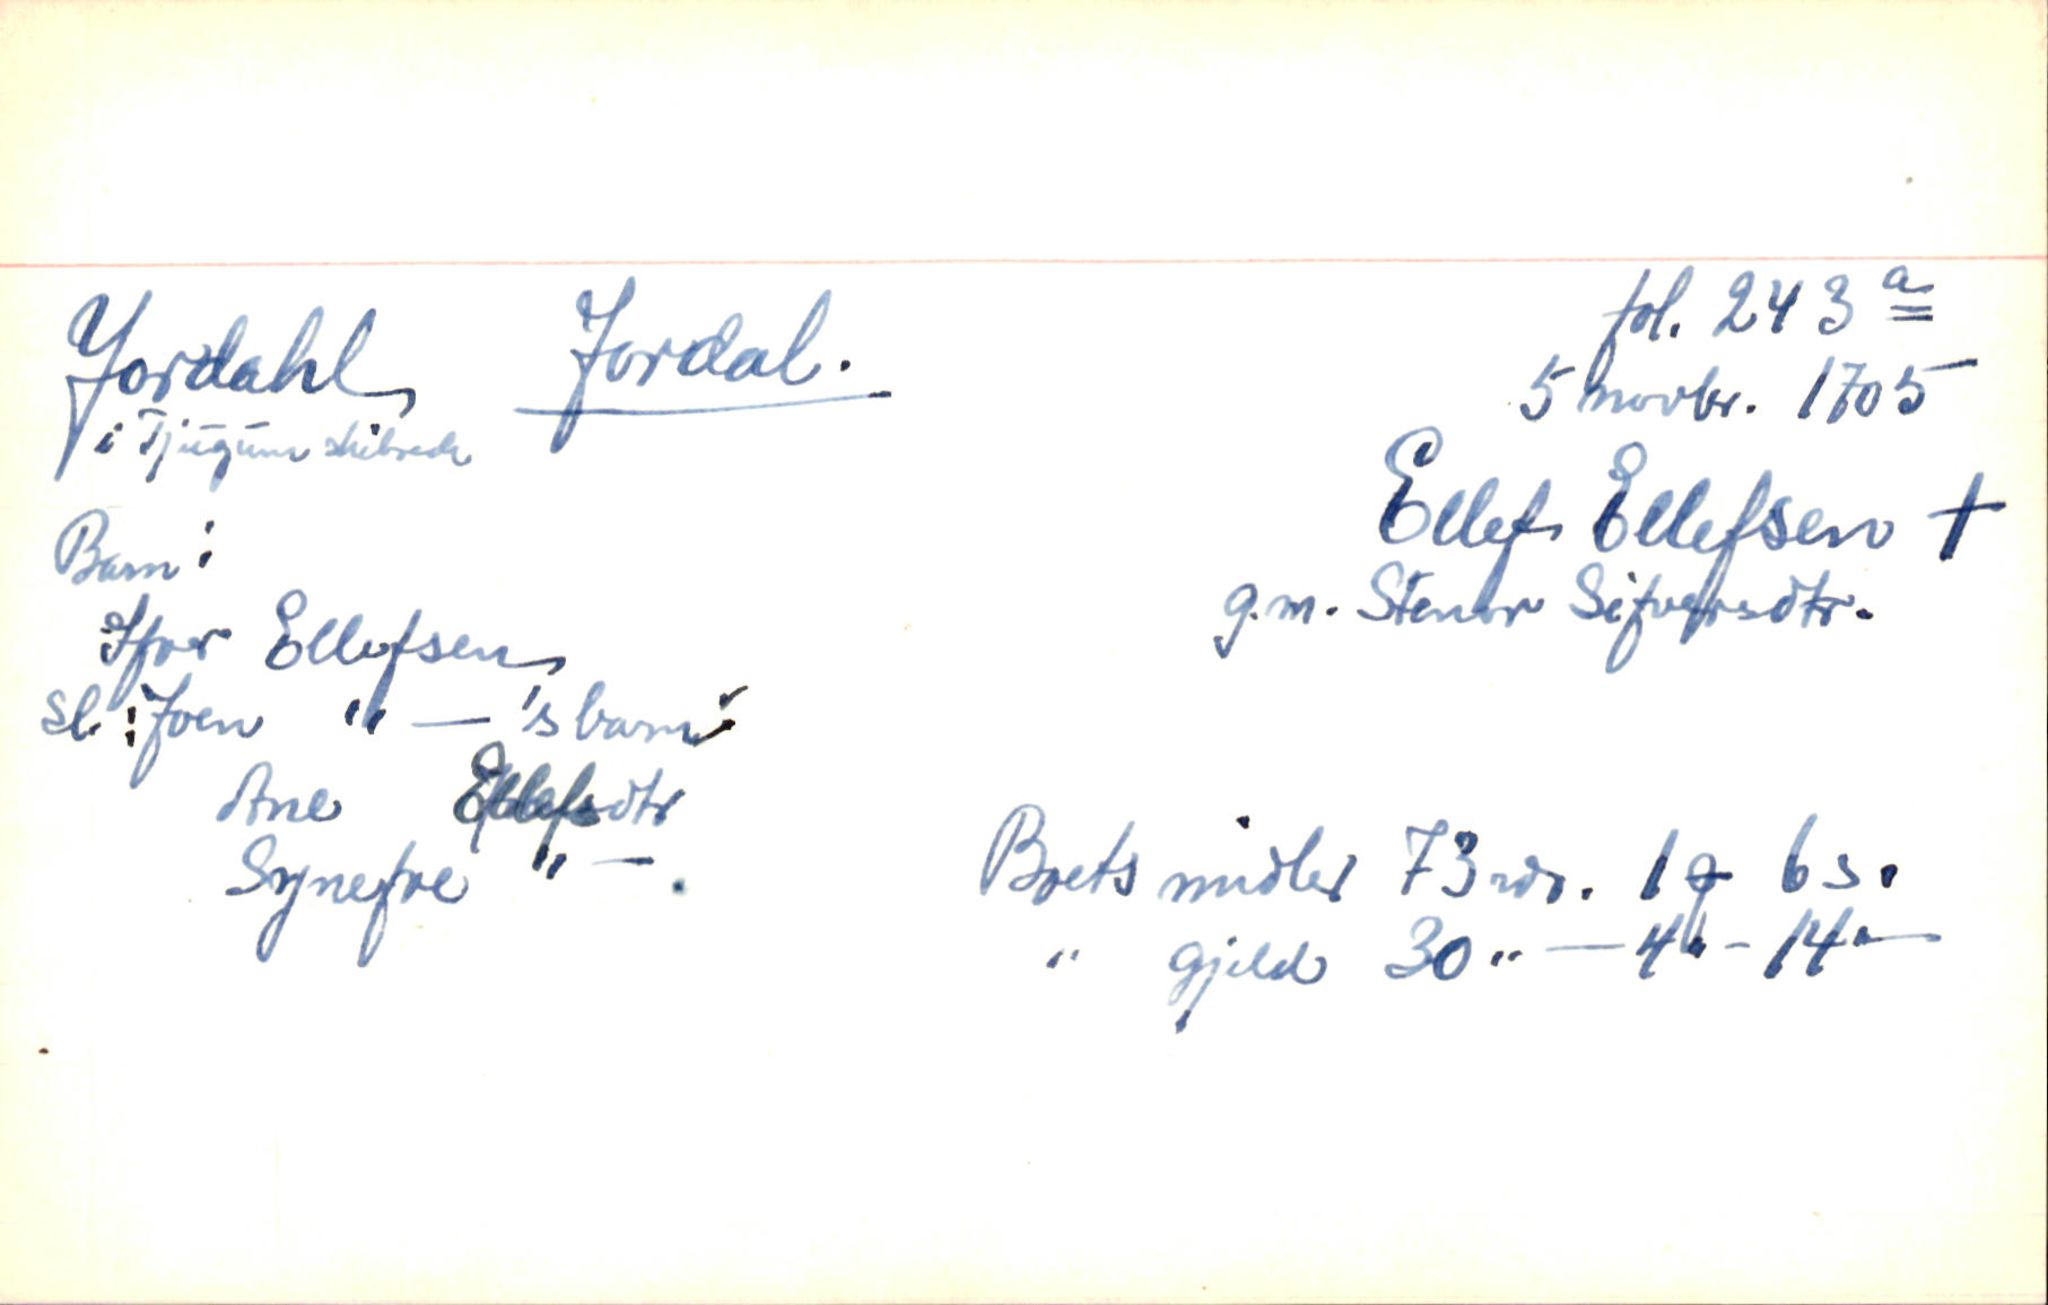 Jordahl Jordal. fol. 243 a
i Tjugum skibrede 5 novbr. 1705
Ellef Ellefsen †
g.m. Stenor Sifversdtr.
Barn:
Ifver Ellefsen
Sl. Joen " — 's barn:
Ane dtr
Synefve " —
Boets midler 73 rdr. 1 q 6 s.
" Gjeld 30 " — 4 " - 14 " —